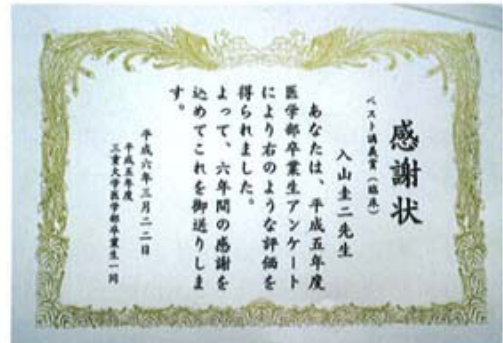 感謝状
ベスト講義賞（臨床）
入山圭二先生
あなたは、平成五年度
医学部卒業生アンケート
により右のような評価を
得られました。
よって、六年間の感謝を
込めてこれを御送りしま
す。
平成六年三月二二日
平成五年度
三重大学医学部卒業生一同